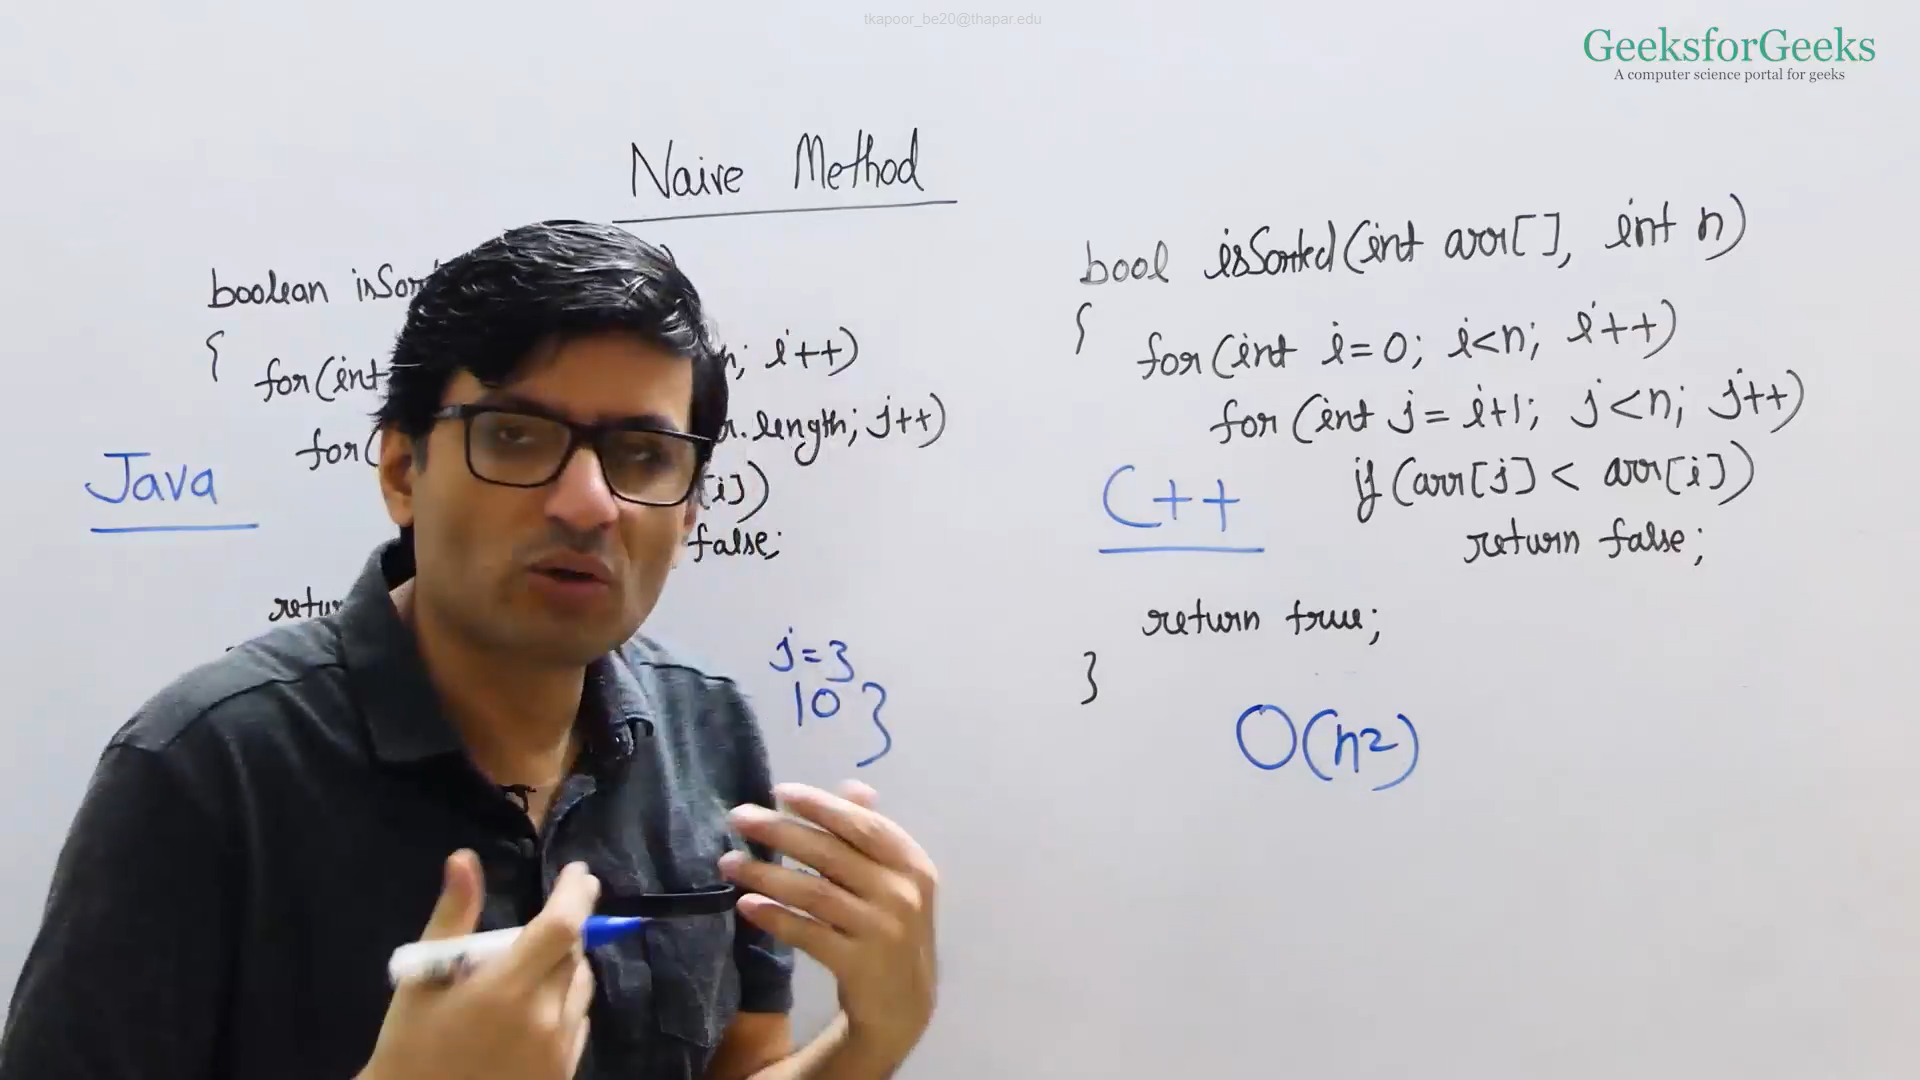 tkapoor_be20@thapar.edu
GeeksforGeeks
A computer science portal for geeks
Naive Method
boolean
{
for(int
n; i++)
for(
.length; j++)
[i])
false;
Java
j=3
10 }
bool isSorted(int arr[], int n)
{
for(int i=0; i<n; i++)
for(int j=i+1; j<n; j++)
if(arr[j] < arr[i])
return false;
C++
return true;
}
O(n²)